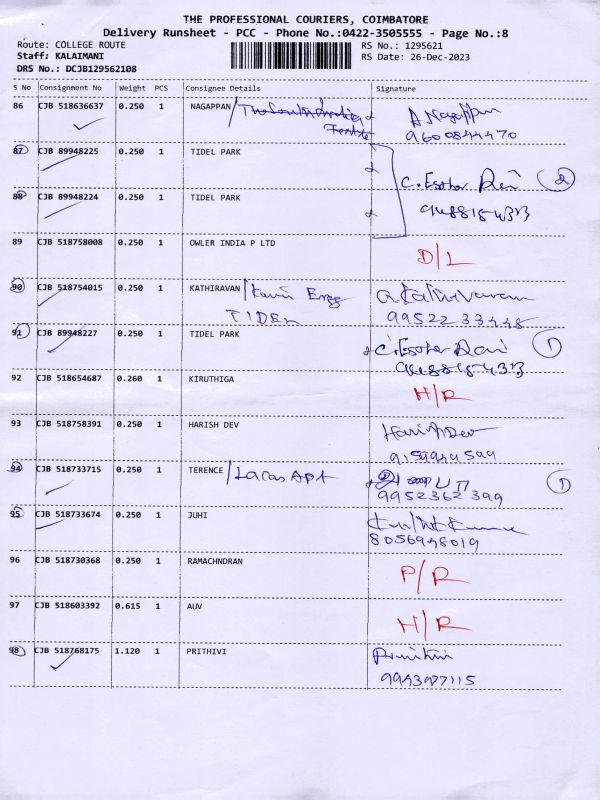 THE PROFESSIONAL COURIERS, COIMBATORE
Delivery Runsheet - PCC - Phone No.:0422-3505555 - Page No.:8
Route: COLLEGE ROUTE RS No.: 1295621
Staff: KALAIMANI RS Date: 26-Dec-2023
DRS No.: DCJB129562108
S No Consignment No Weight PCS Consignee Details Signature
86 CJB 518636637 0.250 1 NAGAPPAN/ A Nagappan
9600844470
87 CJB 89948225 0.250 1 TIDEL PARK
C. Esther Rani 2
88 CJB 89948224 0.250 1 TIDEL PARK
9488154373
89 CJB 518758008 0.250 1 OWLER INDIA P LTD
D/L
90 CJB 518754015 0.250 1 KATHIRAVAN/
TIDEL 9952233448
91 CJB 89948227 0.250 1 TIDEL PARK C. Esther Rani 1
9488154373
92 CJB 518654687 0.260 1 KIRUTHIGA
H/R
93 CJB 518758391 0.250 1 HARISH DEV Harish Dev
94 CJB 518733715 0.250 1 TERENCE/ 1
9952362399
95 CJB 518733674 0.250 1 JUHI
8056948019
96 CJB 518730368 0.250 1 RAMACHNDRAN
P/R
97 CJB 518603392 0.615 1 AUV
H/R
98 CJB 518768175 1.120 1 PRITHIVI